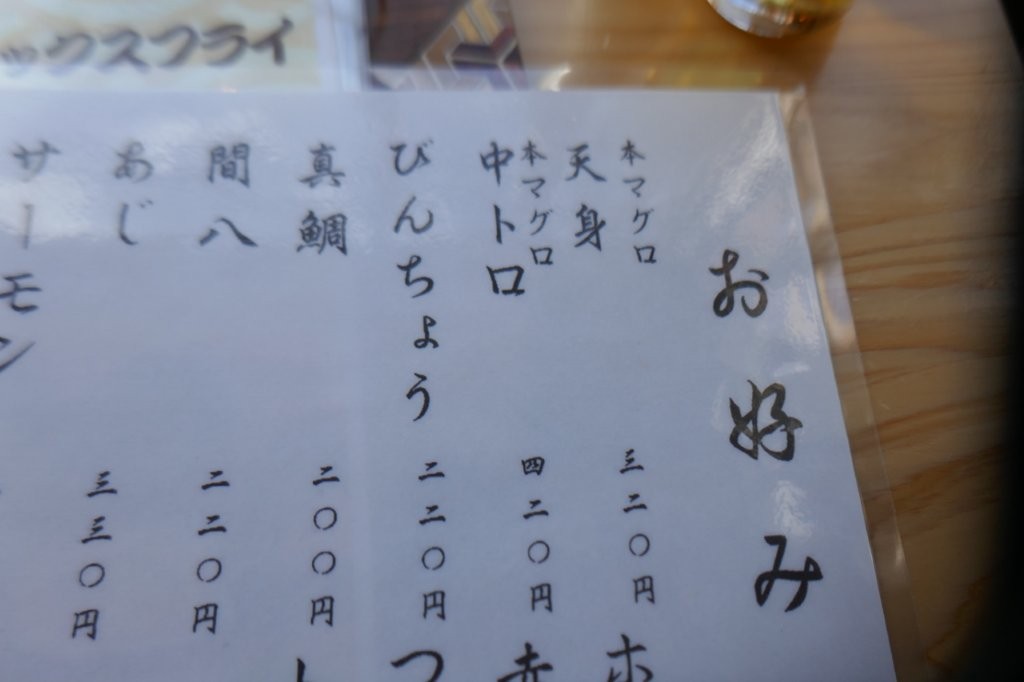 ックスフライ
お好み
本マグロ
天身
三二〇円
本マグロ
中トロ
四二〇円
びんちょう
二二〇円
真鯛
二〇〇円
間八
二二〇円
あじ
三三〇円
サーモン
ホ
赤
つ